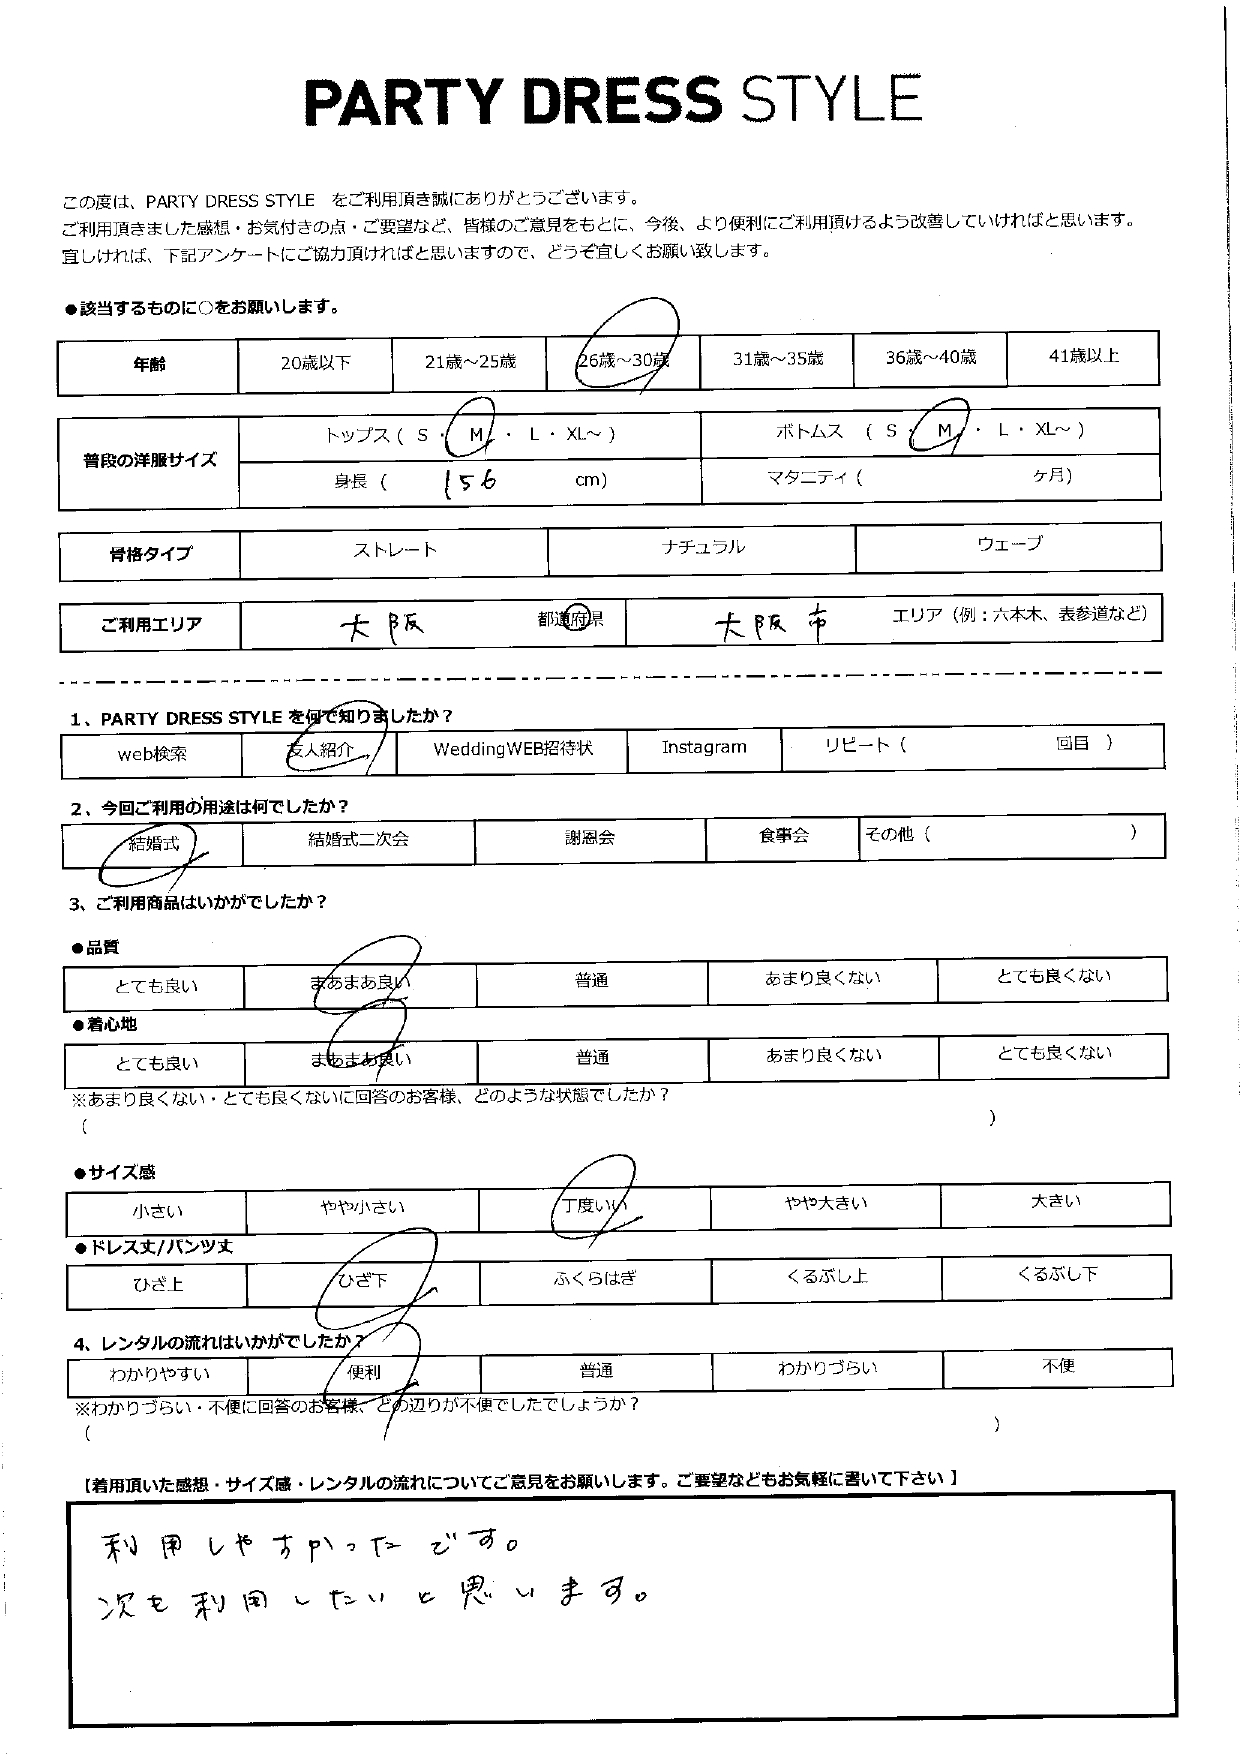 PARTY DRESS STYLE
この度は、PARTY DRESS STYLE をご利用頂き誠にありがとうございます。
ご利用頂きました感想・お気付きの点・ご要望など、皆様のご意見をもとに、今後、より便利にご利用頂けるよう改善していければと思います。
宜しければ、下記アンケートにご協力頂ければと思いますので、どうぞ宜しくお願い致します。
●該当するものに○をお願いします。
年齢 20歳以下 21歳～25歳 26歳～30歳 31歳～35歳 36歳～40歳 41歳以上
普段の洋服サイズ トップス ( S ・ M ・ L ・ XL～ ) ボトムス ( S ・ M ・ L ・ XL～ )
身長 ( 156 cm) マタニティ ( ヶ月)
骨格タイプ ストレート ナチュラル ウェーブ
ご利用エリア 大阪 都道府県 大阪市 エリア（例：六本木、表参道など）
1、PARTY DRESS STYLE を何で知りましたか？
web検索 友人紹介 WeddingWEB招待状 Instagram リピート ( 回目 )
2、今回ご利用の用途は何でしたか？
結婚式 結婚式二次会 謝恩会 食事会 その他 ( )
3、ご利用商品はいかがでしたか？
●品質
とても良い まあまあ良い 普通 あまり良くない とても良くない
●着心地
とても良い まあまあ良い 普通 あまり良くない とても良くない
※あまり良くない・とても良くないに回答のお客様、どのような状態でしたか？
( )
●サイズ感
小さい やや小さい 丁度いい やや大きい 大きい
●ドレス丈/パンツ丈
ひざ上 ひざ下 ふくらはぎ くるぶし上 くるぶし下
4、レンタルの流れはいかがでしたか？
わかりやすい 便利 普通 わかりづらい 不便
※わかりづらい・不便に回答のお客様、どの辺りが不便でしたでしょうか？
( )
【着用頂いた感想・サイズ感・レンタルの流れについてご意見をお願いします。ご要望などもお気軽に書いて下さい】
利用しやすかったです。
次も利用したいと思います。